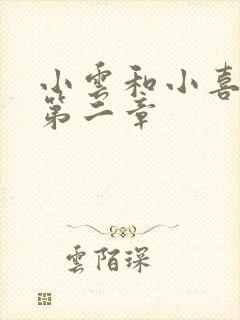 小雲和小喜
第二章
雲陌琛